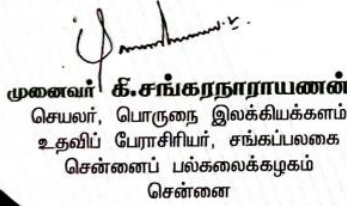 முனைவர் கி.சங்கரநாராயணன்
செயலர், பொருநை இலக்கியக்களம்
உதவிப் பேராசிரியர், சங்கப்பலகை
சென்னைப் பல்கலைக்கழகம்
சென்னை